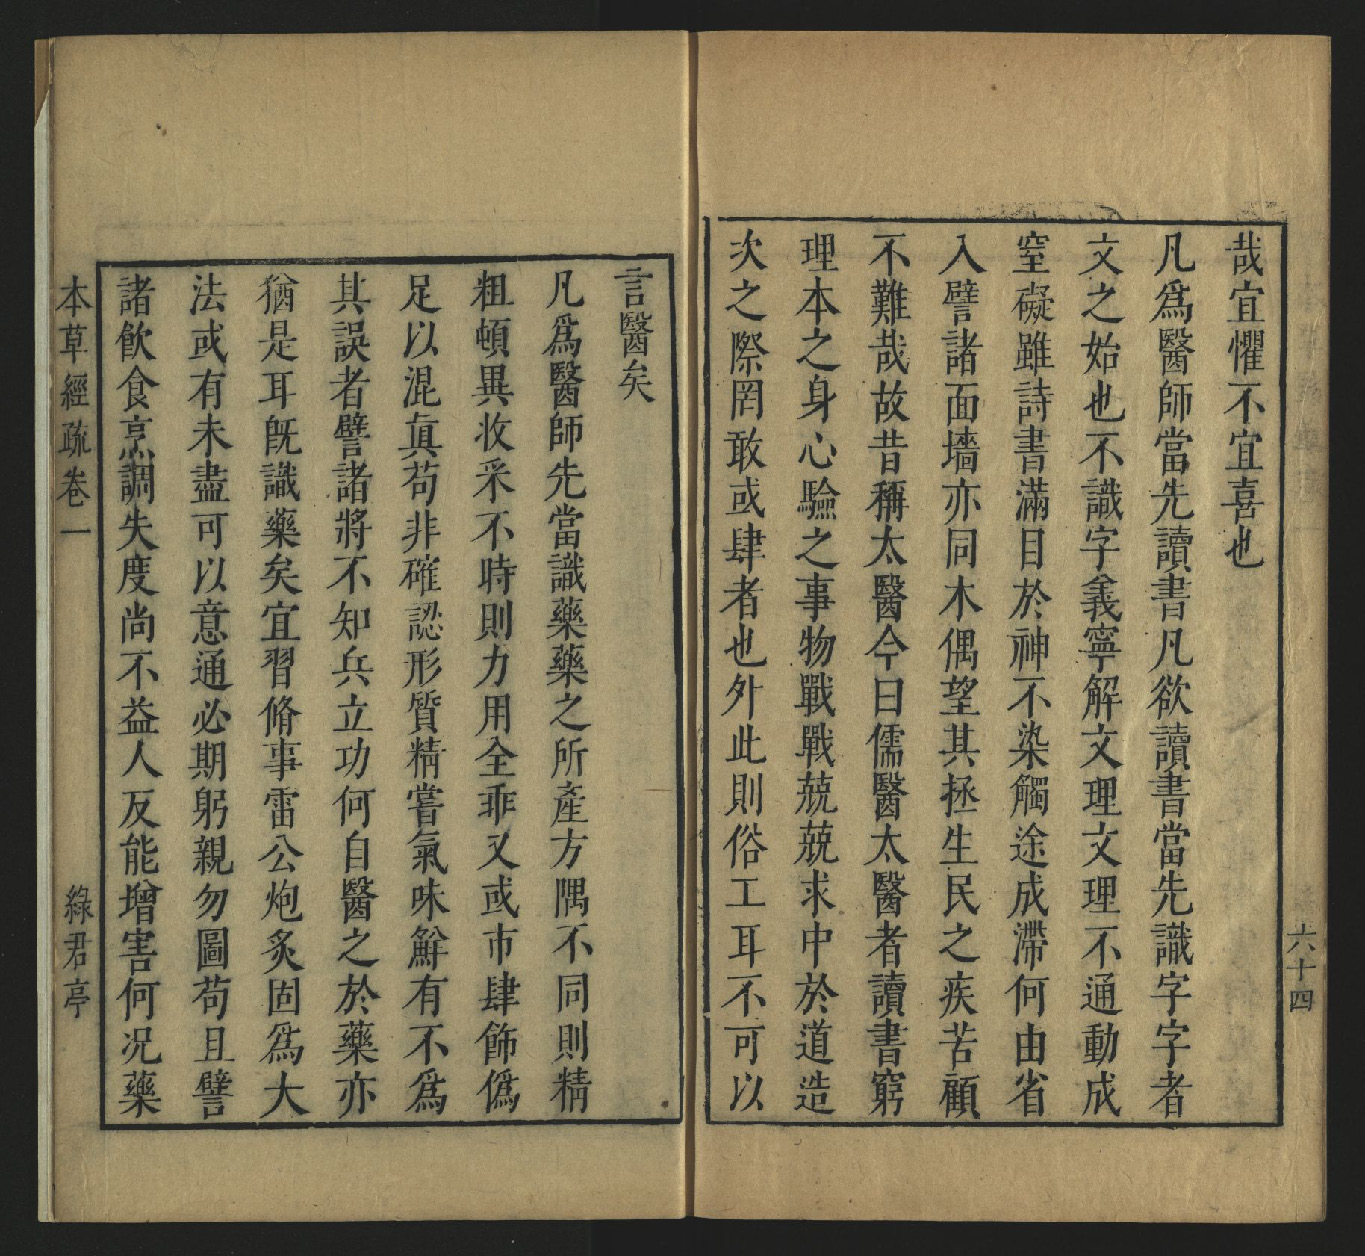 哉宜懼不宜喜也
凡爲醫師當先讀書凡欲讀書當先識字字者
文之始也不識字義寧解文理文理不通動成
窒礙雖詩書滿目於神不染觸途成滯何由省
入譬諸面墻亦同木偶望其拯生民之疾苦顧
不難哉故昔稱太醫今曰儒醫太醫者讀書窮
理本之身心驗之事物戰戰兢兢求中於道造
次之際罔敢或肆者也外此則俗工耳不可以
六十四
言醫矣
凡爲醫師先當識藥藥之所產方隅不同則精
粗頓異收采不時則力用全乖又或市肆飾僞
足以混眞苟非確認形質精嘗氣味鮮有不爲
其誤者譬諸將不知兵立功何自醫之於藥亦
猶是耳旣識藥矣宜習脩事雷公炮炙固爲大
法或有未盡可以意通必期躬親勿圖苟且譬
諸飲食烹調失度尚不益人反能增害何况藥
本草經疏卷一
綠君亭